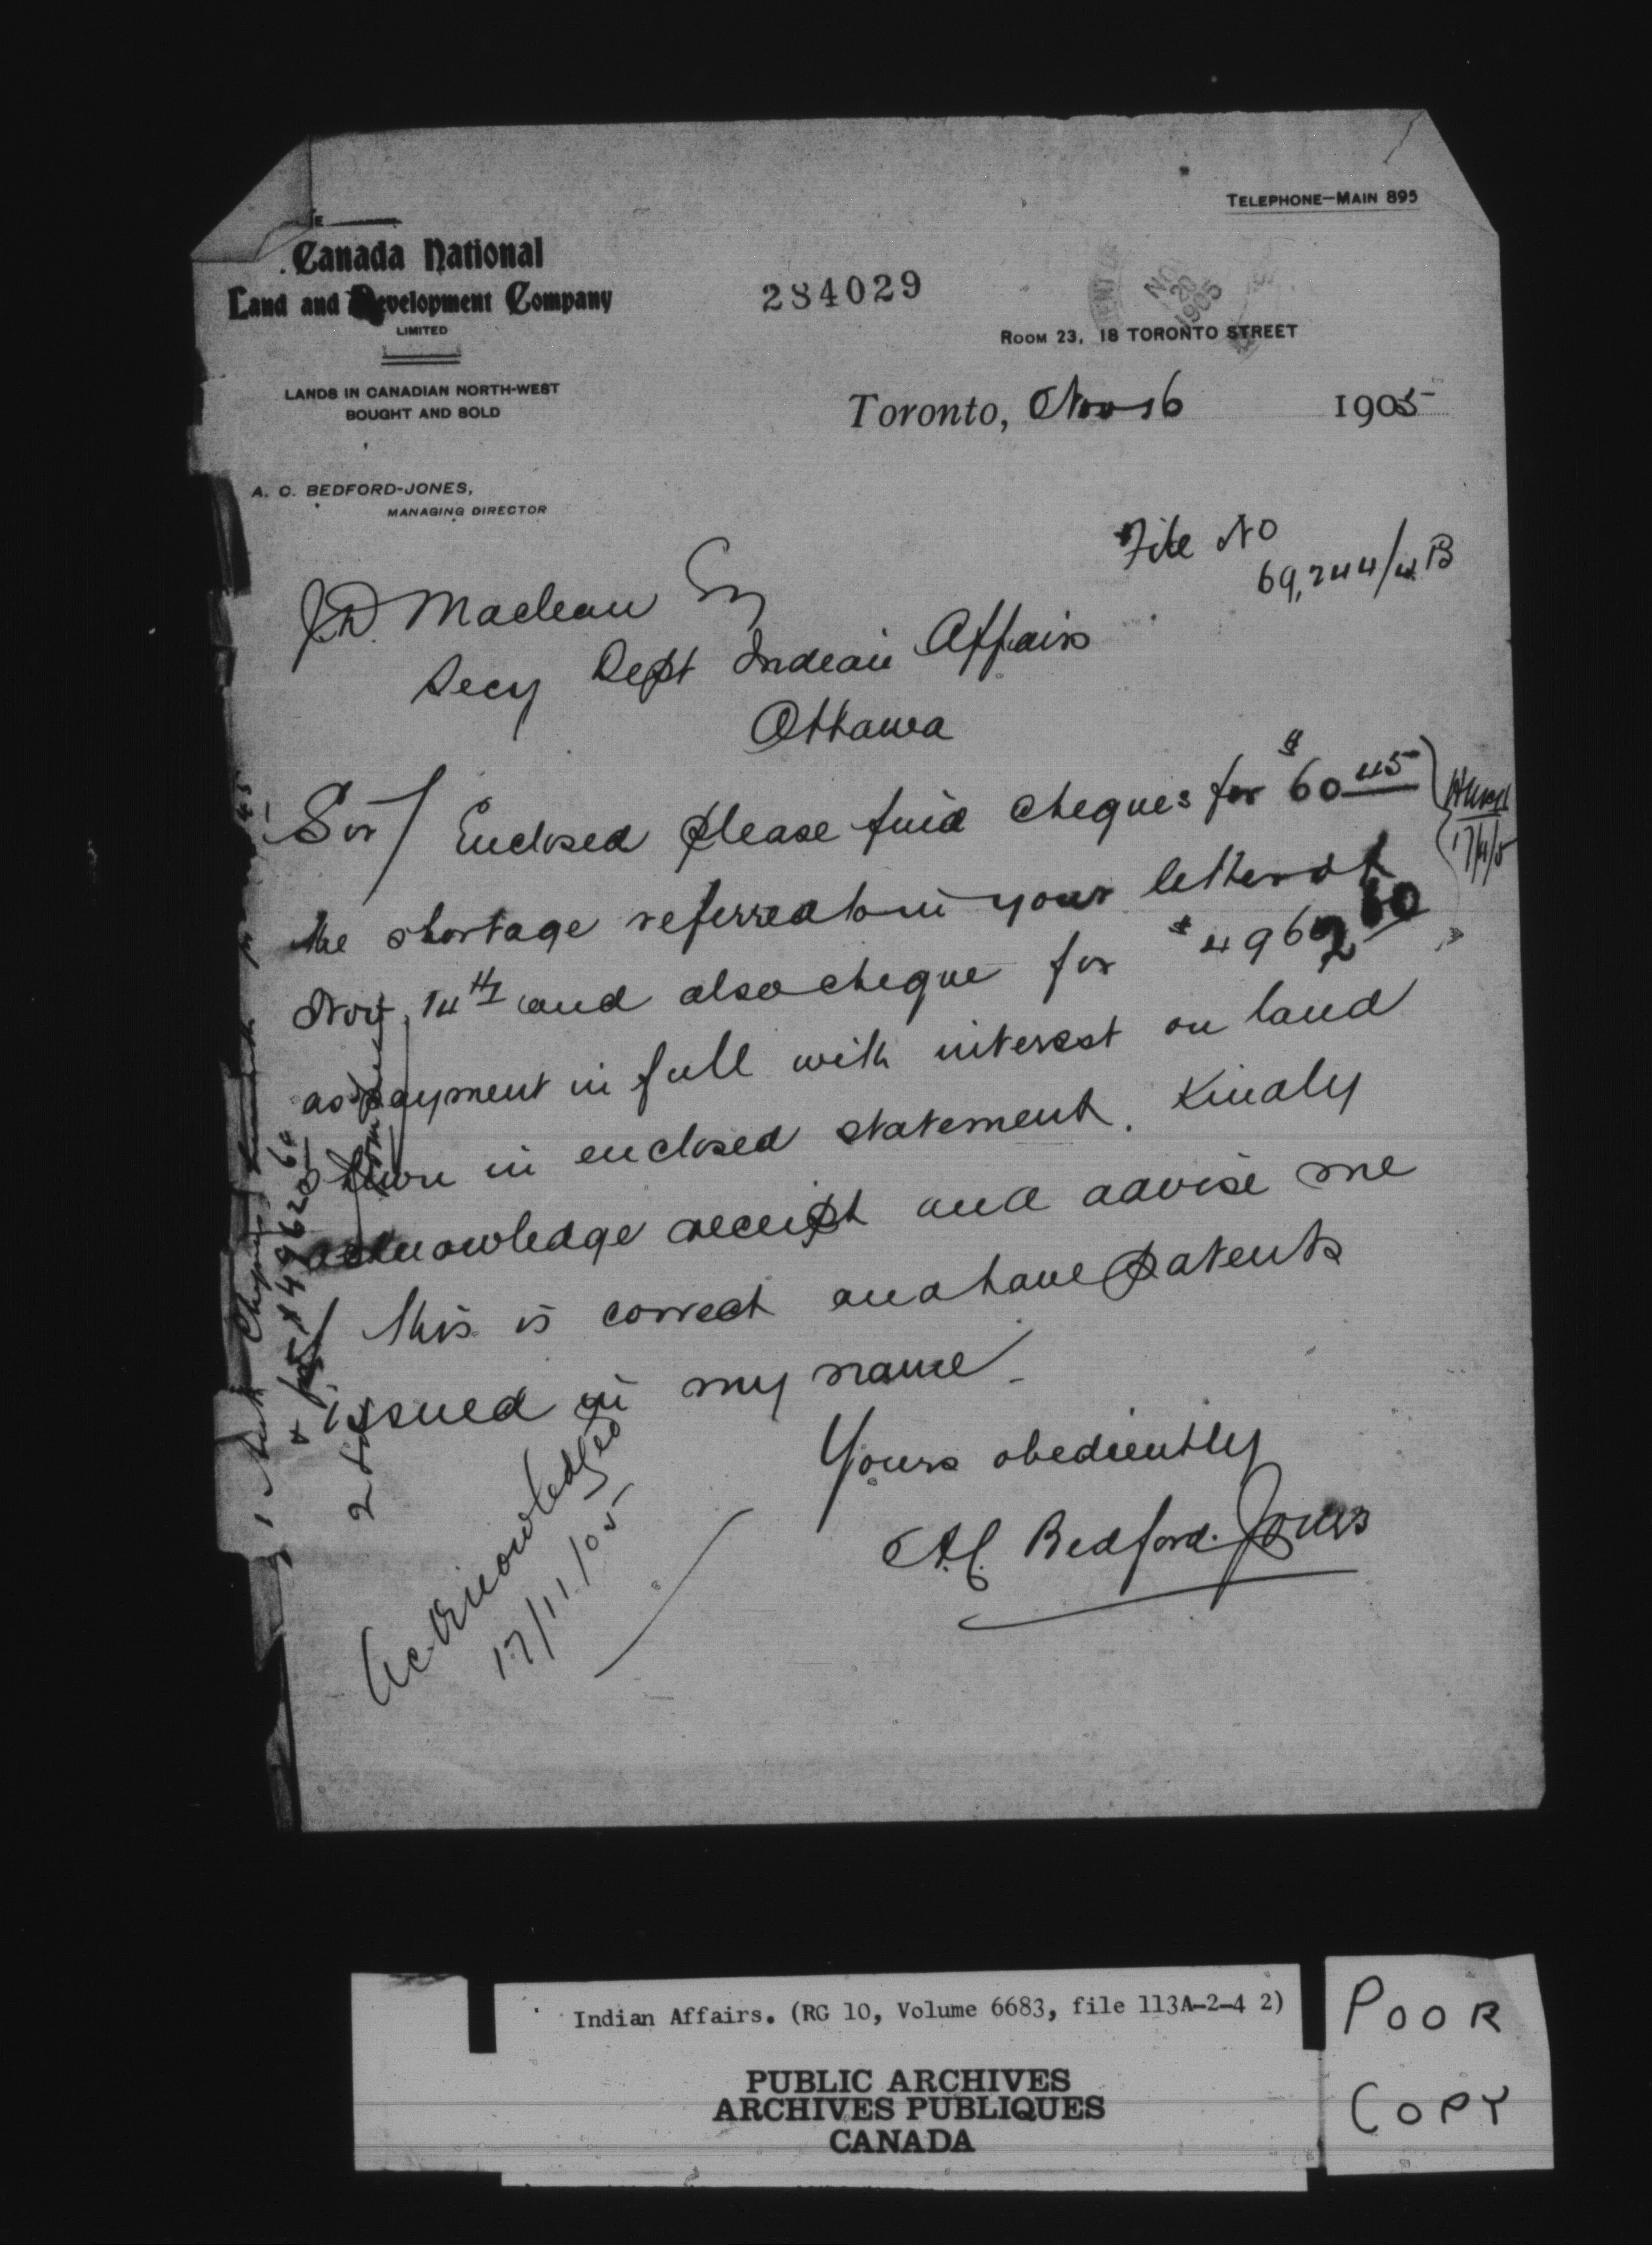 TELEPHONE—MAIN 895
Canada National
Land and Development Company
LIMITED
284029
NOV 20 1905
ROOM 23, 18 TORONTO STREET
LANDS IN CANADIAN NORTH-WEST
BOUGHT AND SOLD
Toronto, Nov 16 1905
A. C. BEDFORD-JONES,
MANAGING DIRECTOR
File No
69,244/4 B
J.D. Maclean Esq
Secy Dept Indian Affairs
Ottawa
Sir/ Enclosed please find cheques for $60 45
the shortage referred to in your letter of
Nov. 14th and also cheque for $4962 60
as payment in full with interest on land
shown in enclosed statement. Kindly
acknowledge receipt and advise me
if this is correct and have patents
issued in my name.
Yours obediently
A.C. Bedford-Jones
Acknowledged
17/11/05
Indian Affairs. (RG 10, Volume 6683, file 113A-2-4 2)
PUBLIC ARCHIVES
ARCHIVES PUBLIQUES
CANADA
POOR
COPY